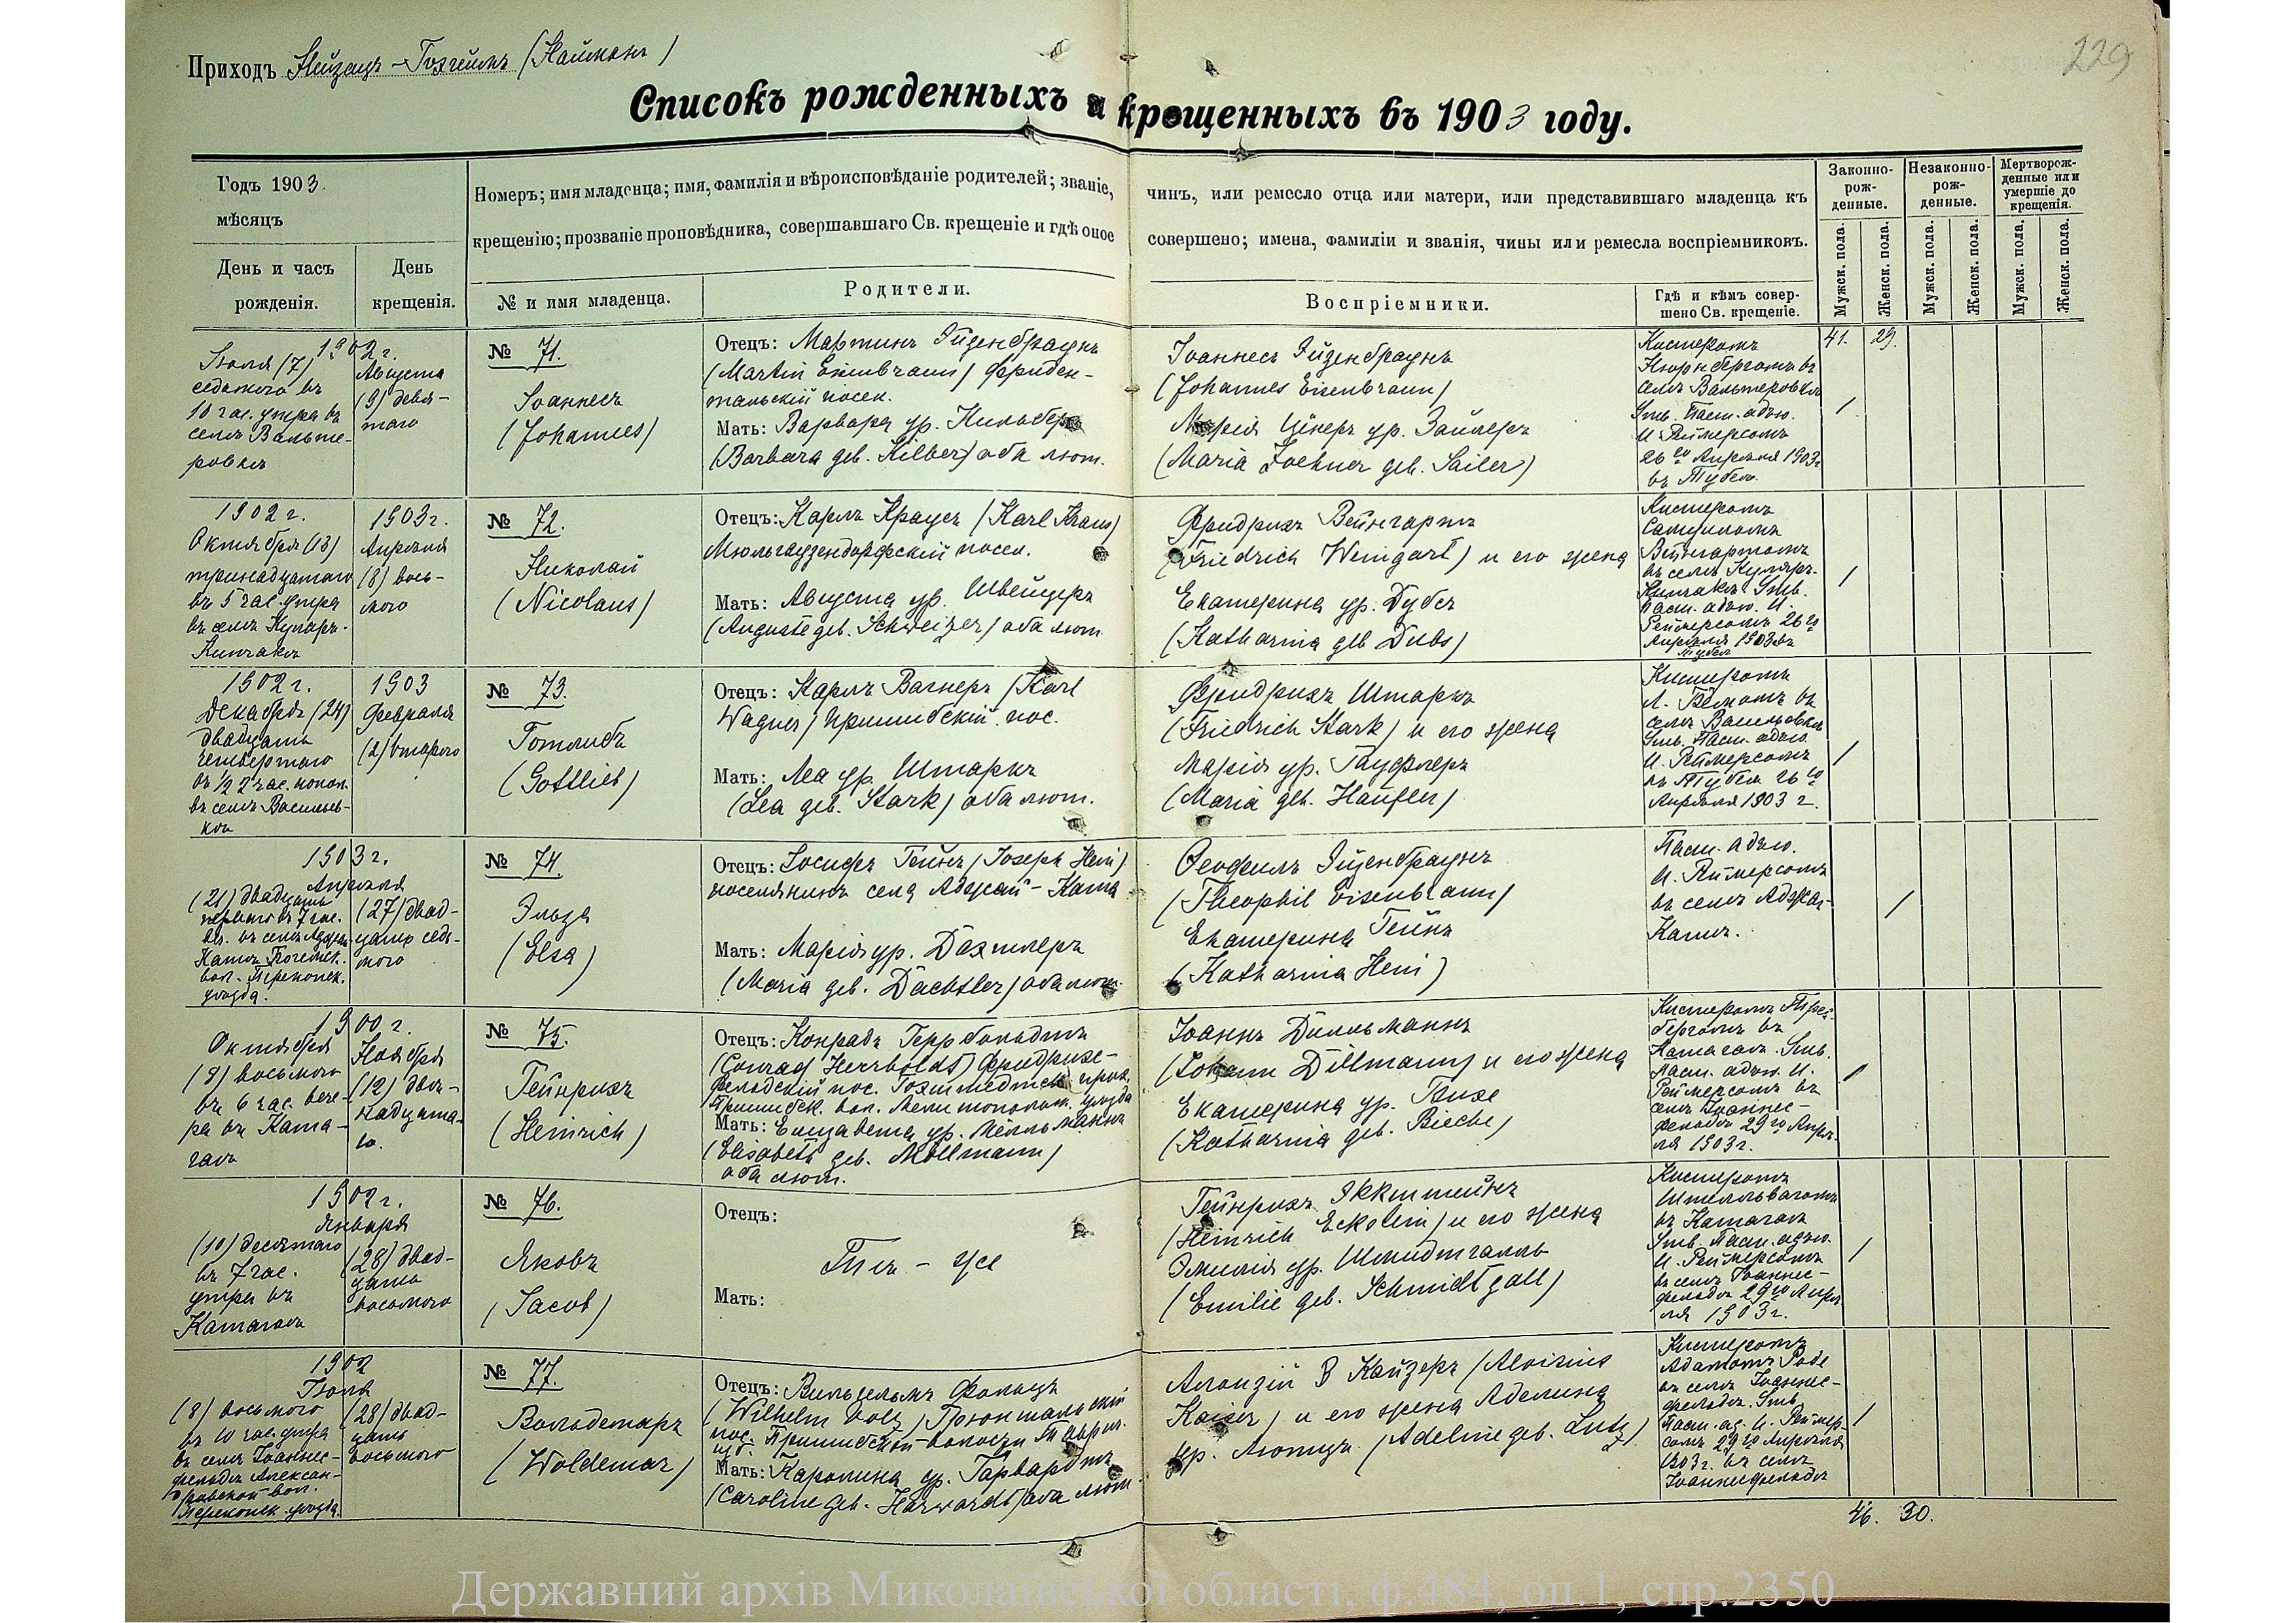 Приходъ Нейзацъ – Гохгеймъ (Найманъ)
229
Списокъ рожденныхъ и крещенныхъ въ 1903 году.
Годъ 1903.
мѣсяцъ
День и часъ
рожденія.
День
крещенія.
Номеръ; имя младенца; имя, фамилія и вѣроисповѣданіе родителей; званіе,
чинъ, или ремесло отца или матери, или представившаго младенца къ
крещенію; прозваніе проповѣдника, совершавшаго Св. крещеніе и гдѣ оное
совершено; имена, фамиліи и званія, чины или ремесла воспріемниковъ.
№ и имя младенца.
Родители.
Воспріемники.
Гдѣ и кѣмъ совер-
шено Св. крещеніе.
Законно-
рож-
денные.
Незаконно-
рож-
денные.
Мертворож-
денные или
умершіе до
крещенія.
Мужск. пола.
Женск. пола.
Мужск. пола.
Женск. пола.
Мужск. пола.
Женск. пола.
1902 г.
Іюля (7)
седьмого въ
10 час. утра въ
селѣ Вальте-
ровкѣ
Августа
(9) девя-
таго
№ 71.
Іоаннесъ
(Johannes)
Отецъ: Мартинъ Эйзенбраунъ
(Martin Eisenbraun) Фриден-
тальскій посел.
Мать: Варвара ур. Кильберъ
(Barbara geb. Kilber) оба лют.
Іоаннесъ Эйзенбраунъ
(Johannes Eisenbraun)
Марія Цёнеръ ур. Зайлеръ
(Maria Zoehner geb. Sailer)
Кистеромъ
Нюрнбергомъ въ
селѣ Вальтеровкѣ
Утв. Паст. адъю.
И. Реймерсомъ
26го Апрѣля 1903г.
въ Тубеѣ.
41. 29.
1
1902 г.
Октября (13)
тринадцатаго
въ 5 час. утра
въ селѣ Куляръ-
Кипчакъ
1903 г.
Апрѣля
(8) вось-
мого
№ 72.
Николай
(Nicolaus)
Отецъ: Карлъ Краусъ (Karl Kraus)
Мюльгаузендорфскій посел.
Мать: Августа ур. Швейцеръ
(Auguste geb. Schweizer) оба лют.
Фридрихъ Вейнгартъ
(Friedrich Weingart) и его жена
Екатерина ур. Дубсъ
(Katharina geb Dubs)
Кистеромъ
Самуиломъ
Вейнгартомъ
въ селѣ Куляръ-
Кипчакъ Утв.
Паст. адъю. И.
Реймерсомъ 26го
Апрѣля 1903 въ
Тубеѣ
1
1902 г.
Декабря (24)
двадцать
четвертаго
въ ½ 2 час. попол.
въ селѣ Васильев-
кѣ
1903
Февраля
(2) второго
№ 73.
Готлибъ
(Gottlieb)
Отецъ: Карлъ Вагнеръ (Karl
Wagner) Пришибскій пос.
Мать: Леа ур. Штаркъ
(Lea geb. Stark) оба лют.
Фридрихъ Штаркъ
(Friedrich Stark) и его жена
Марія ур. Гауфлеръ
(Maria geb. Haufler)
Кистеромъ
въ
селѣ Васильевкѣ
Утв. Паст. адъю.
И. Реймерсомъ
въ Тубеѣ 26го
Апрѣля 1903 г.
1
1903 г.
Апрѣля
(21) двадцать
перваго въ 7 час.
въ селѣ Аджай
уѣзда.
(27) двад-
цать седь-
мого
№ 74.
Эльза
(Elsa)
Отецъ: Іосифъ Гейнъ (Joseph Hein)
поселянинъ села Аджай-Ката
Мать: Марія ур. Дахтлеръ
(Maria geb. Dächtler) оба лют.
Ѳеофилъ Эйзенбраунъ
(Theophil Eisenbraun)
Екатерина Гейнъ
(Katharina Hein)
Паст. адъю.
И. Реймерсомъ
въ селѣ Аджай-
Катѣ.
1
1900 г.
Октября
(8) восьмого
въ 6 час. вече-
ра въ Ката-
гаѣ
Ноября
(12) двѣ-
надцата-
го.
№ 75.
Гейнрихъ
(Heinrich)
Отецъ: Конрадъ Геррбольдтъ
(Conrad Herrboldt) Фридрихс-
фельдскій пос. Гохштедтск. прих.
Пришибск. вол. Мелитопольск. уѣзда
Мать: Елизавета ур. Мёлльманнъ
(Elisabeth geb. Möllmann)
оба лют.
Іоаннъ Дилльманнъ
(Johann Dillmann) и его жена
Екатерина ур. Бихе
(Katharina geb. Bieche)
Кистеромъ
бергомъ въ
Катагаѣ. Утв.
Паст. адъю. И.
Реймерсомъ въ
селѣ Іоаннес-
фельдѣ 29го Апрѣ-
ля 1903 г.
1
1902 г.
Января
(10) десятаго
въ 7 час.
утра въ
Катагаѣ
(28) двад-
цать
восьмого
№ 76.
Яковъ
(Jacob)
Отецъ:
Тѣ-же
Мать:
Гейнрихъ Эккштейнъ
(Heinrich Eckstein) и его жена
Эмилія ур. Шмидтгалль
(Emilie geb. Schmidtgall)
Кистеромъ
Штелльвагомъ
въ Катагаѣ
Утв. Паст. адъю.
И. Реймерсомъ
въ селѣ Іоаннес-
фельдѣ 29го Апрѣ
ля 1903 г.
1
1902
Іюля
(8) восьмого
въ 10 час. утра
въ селѣ Іоаннес-
фельдѣ Алексан-
дровской вол.
Перекопск. уѣзда.
(28) двад-
цать
восьмого
№ 77.
Вольдемаръ
(Woldemar)
Отецъ: Вильгельмъ Фольцъ
(Wilhelm Volz) Грюнтальскій
пос. Пришибской волости Таврич.
губ.
Мать: Каролина ур. Гарвардтъ
(Caroline geb. Harwardt) оба лют.
Алоизій Кайзеръ (Aloisius
Kaiser) и его жена Аделина
ур. Лютцъ (Adeline geb. Lutz)
Кистеромъ
Адамомъ Раде
въ селѣ Іоаннес-
фельдѣ. Утв.
Паст. ад. И. Реймер-
сомъ 29го Апрѣля
1903 г. въ селѣ
Іоаннесфельдѣ
1
46. 30.
Державний архів Миколаївської області, ф.484, оп.1, спр.2350